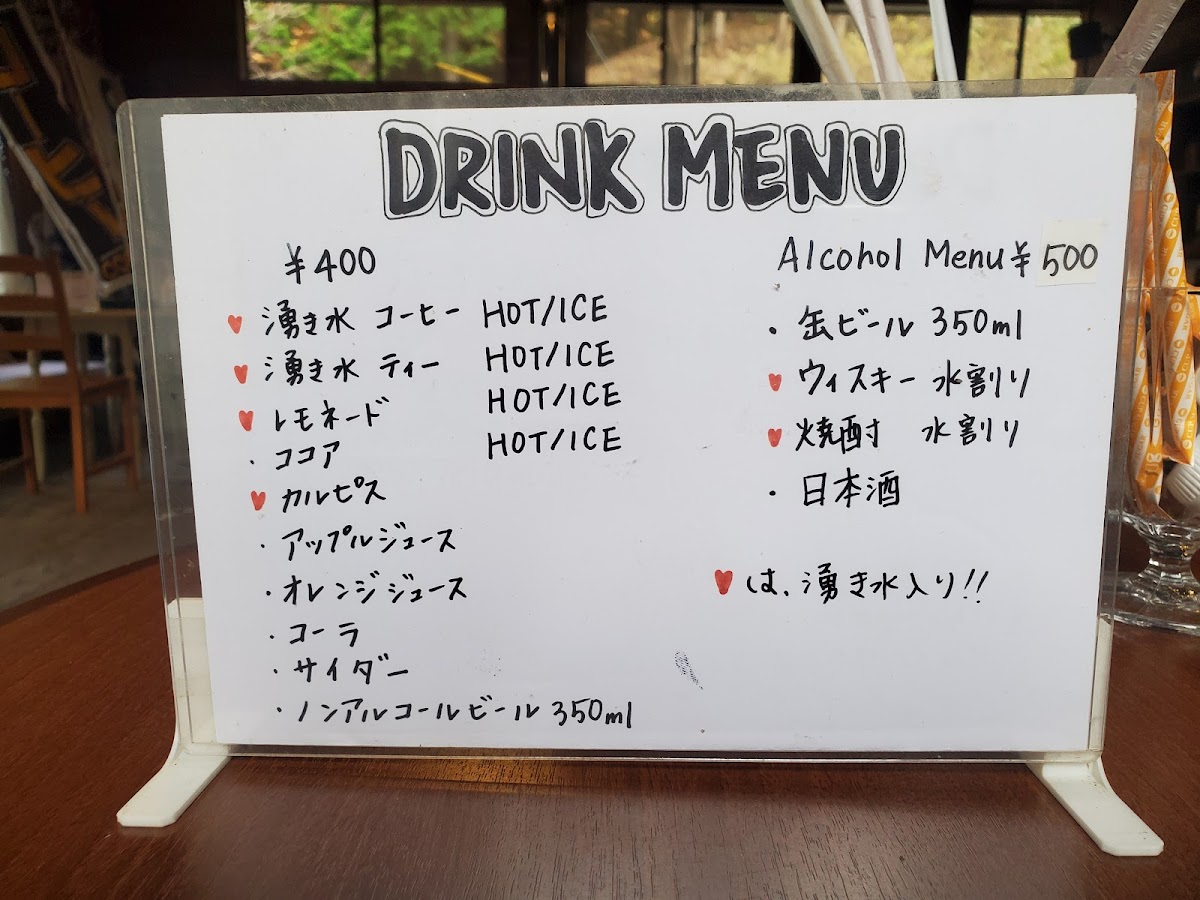 DRINK MENU
¥400
♥ 湧き水 コーヒー HOT/ICE
♥ 湧き水 ティー HOT/ICE
♥ レモネード HOT/ICE
・ココア HOT/ICE
♥ カルピス
・アップルジュース
・オレンジジュース
・コーラ
・サイダー
・ノンアルコールビール 350ml
Alcohol Menu ¥500
・缶ビール 350ml
♥ ウィスキー 水割り
♥ 焼酎 水割り
・日本酒
♥は、湧き水入り!!